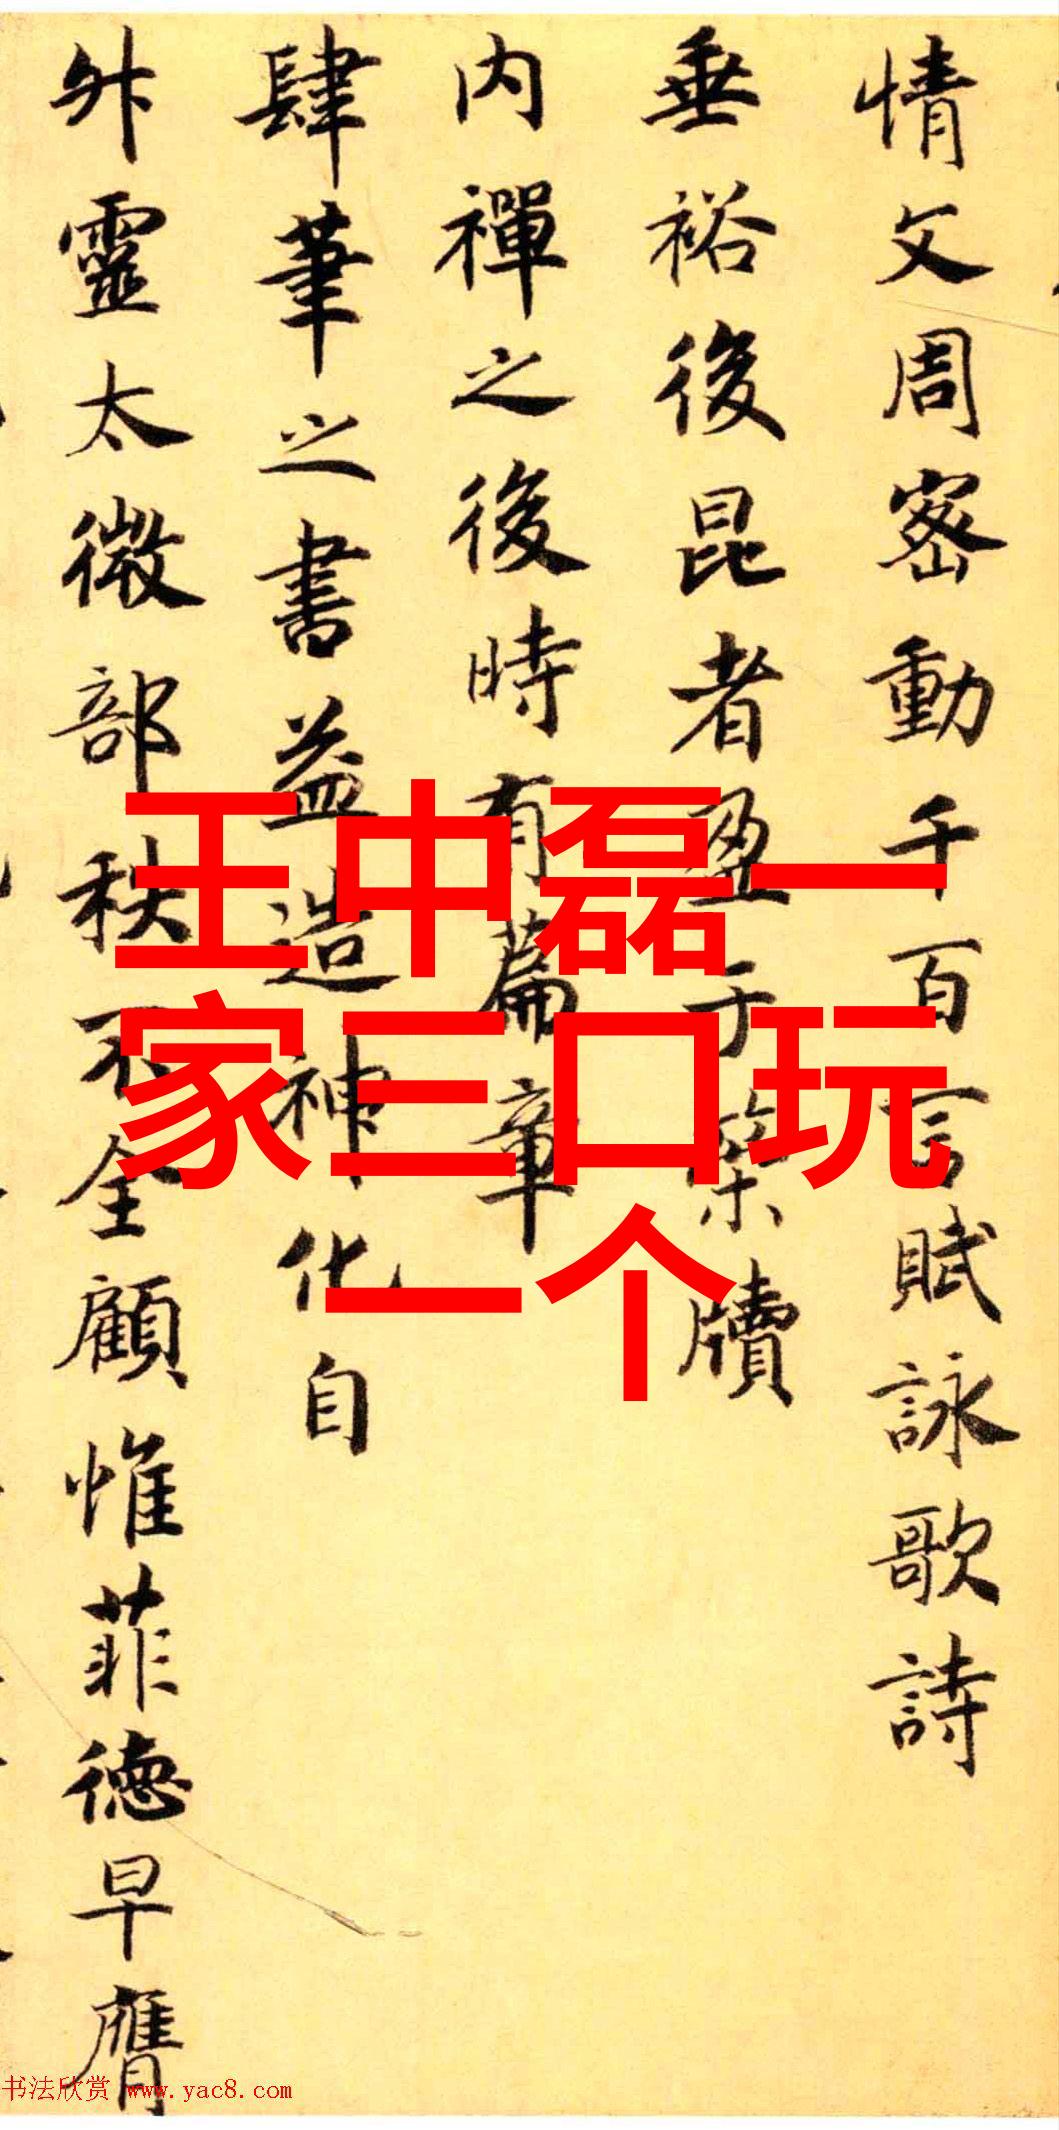 情文周密動千百言賦詠歌詩
垂裕後昆者盈于案牘
内禪之後時有篇章
肆筆之書益造神化自
外靈太微部秩不全顧惟菲德早膺
王中磊一
家三口玩
一个
书法欣赏 www.yac8.com